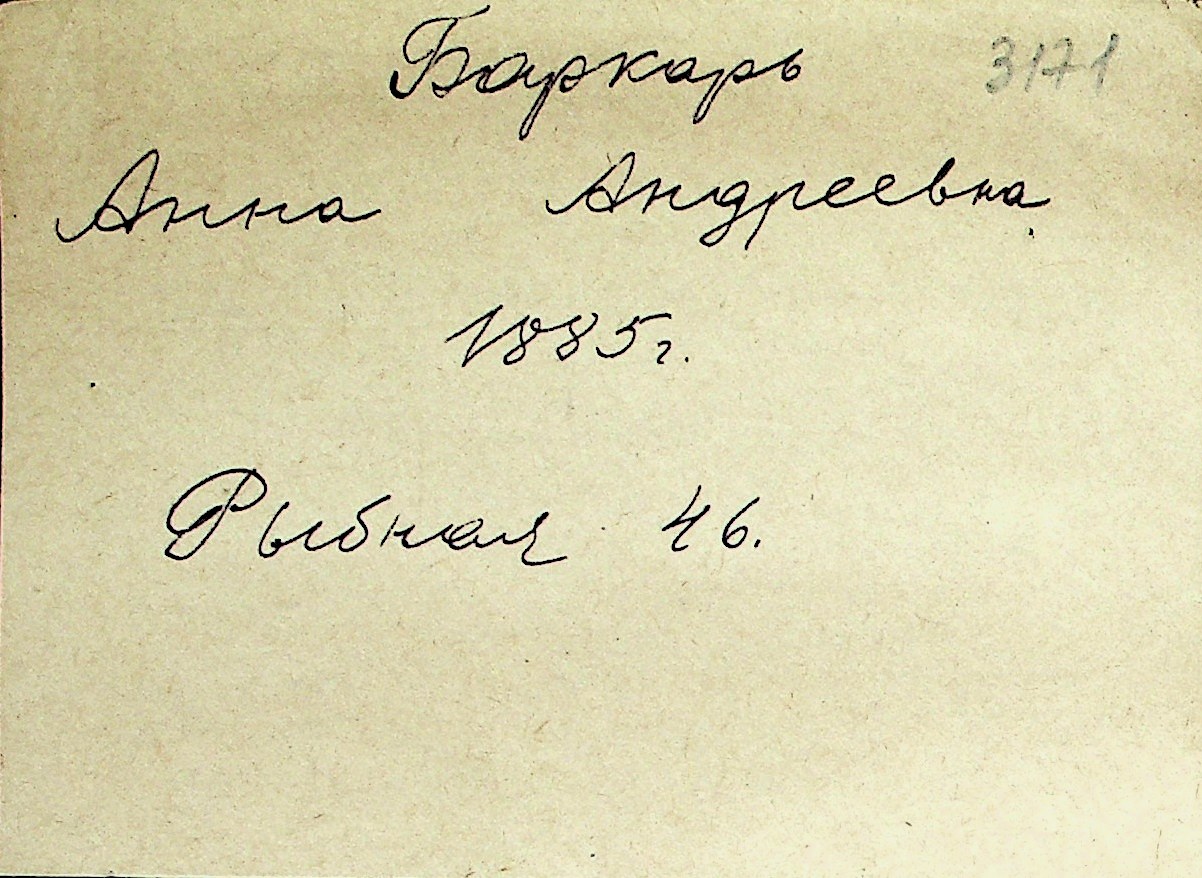 Баркарь 3171
Анна Андреевна
1885г.
Рыбная 46.